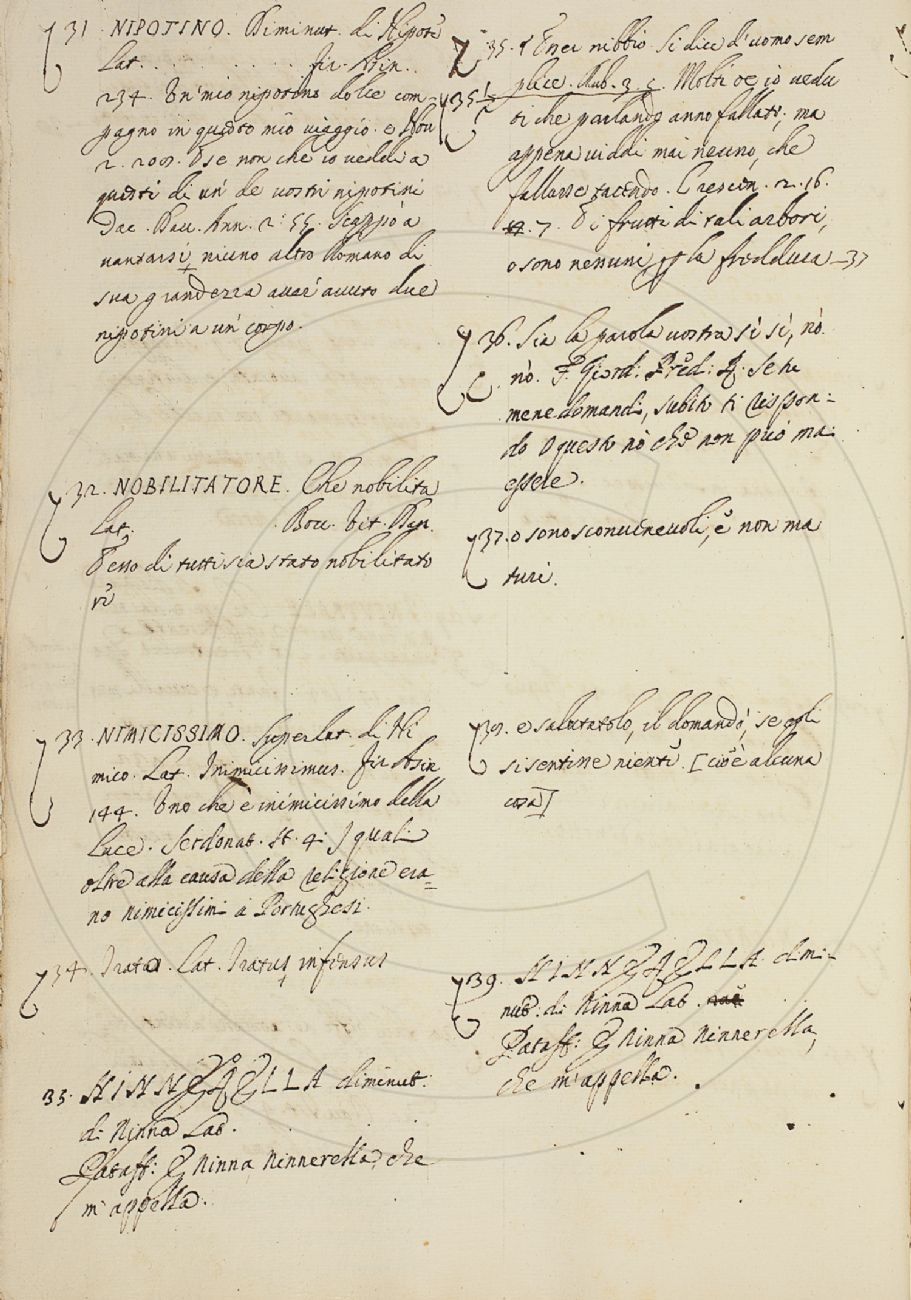 31. NIPOTINO. Diminut. di Nipote
Lat. . . . . . . . . . . fir. Asin.
234. Un' mio nipotino dolce com-
pagno in questo mio viaggio. e Nov
2. 209. Se non che io veddi a
questi di un' de vostri nipotini
Dav. Ann. 2. 55. Scappò a
vantarsi, niuno altro Romano di
sua grandezza aver' avuto due
nipotini a un' corpo.
32. NOBILITATORE. Che nobilita
Lat. Bocc. Vit. Dan.
esso di tutti sia stato nobilitato
re
33. NIMICISSIMO. Superlat. di Ni
mico. Lat. Inimicissimus. fir Asin
144. Uno che è inimicissimo della
Luce. Serdonat. St. 4. I quali
oltre alla causa della religione era=
no nimicissimi a Portughesi.
34. Irato. Lat. Iratus, infensus
35. NINNERELLA diminut:
di Ninna Lat.
Pataff: E Ninna Ninnerella, che
m' appella.
35. nibbio si dice d' uomo sem
plice. Rub.
35 1/2 Molti io vedu
ti che parlando anno fallato, ma
appena viddi mai neuno, che
fallasse tacendo. Crescen. 2. 16.
7. E i frutti di tali arbori,
o sono nessuni la freddura 37
36. Sia la parola vostra sì sì, nò
nò. F. Giord. Pred. R. Se tu
mene domandi, subito ti rispon=
do questo nò che non può ma
essere.
37. o sono sconvenevoli, e non ma
turi.
e salutatolo, il domandò, se egli
si sentisse niente. [cioè alcuna
cosa]
39. NINNERELLA dimi-
nut. di Ninna Lat.
Pataff: E Ninna Ninnerella,
che m' appella.